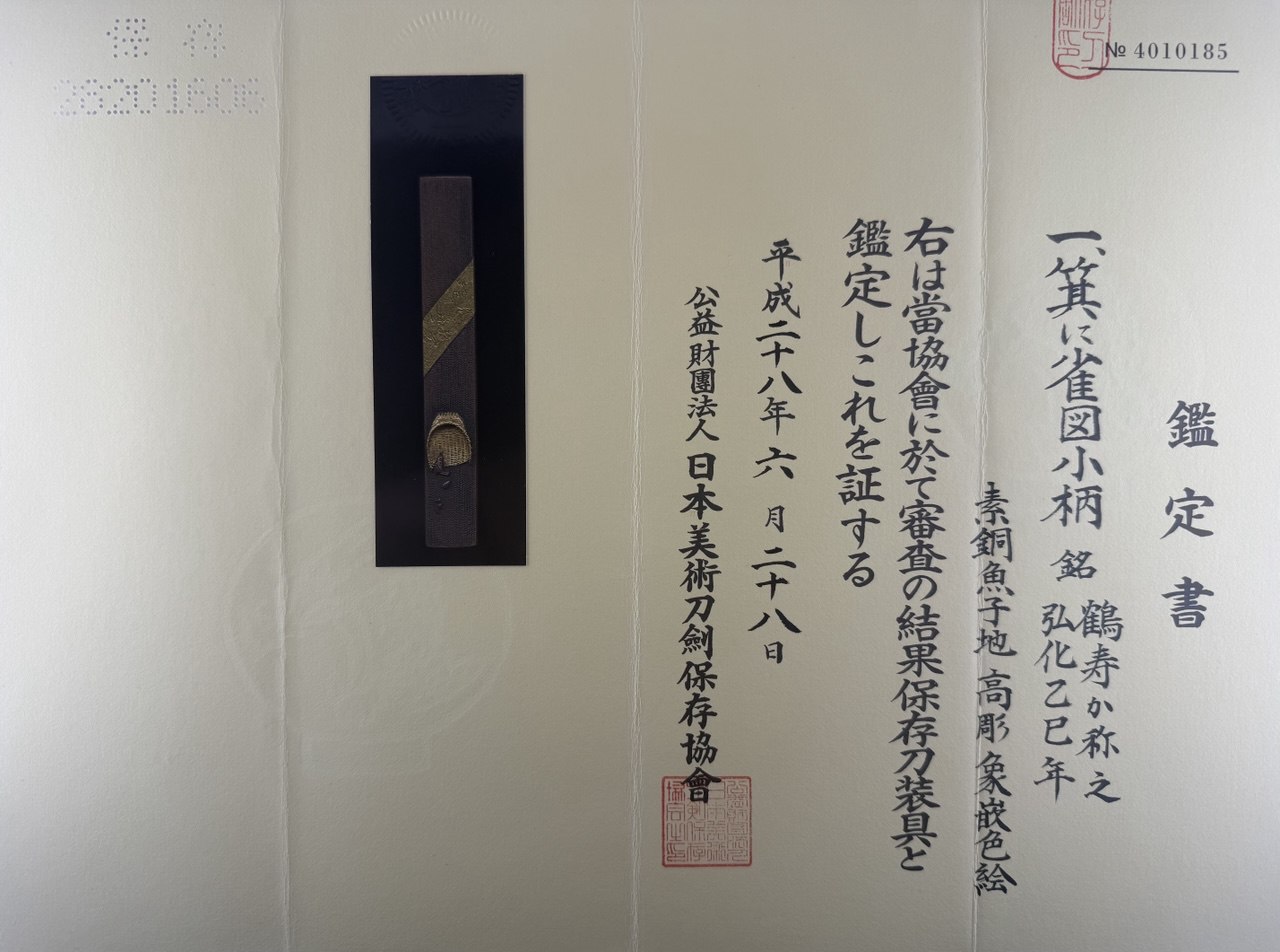 № 4010185
鑑定書
一、箕に雀図小柄 銘 鶴寿か称之
弘化乙巳年
素銅魚子地 高彫 象嵌色絵
右は當協會に於て審査の結果保存刀装具と
鑑定しこれを証する
平成二十八年六月二十八日
公益財團法人 日本美術刀劍保存協會
保存